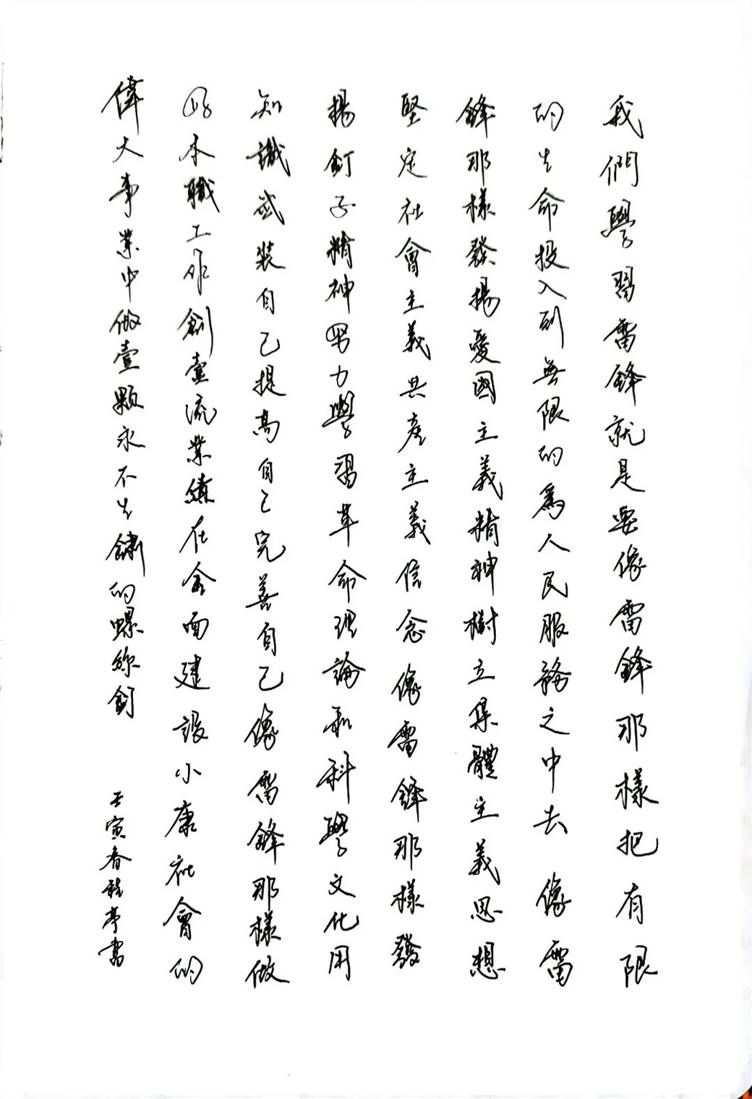 我們學習雷鋒就是要像雷鋒那樣把有限
的生命投入到無限的為人民服務之中去像雷
鋒那樣發揚愛國主義精神樹立集體主義思想
堅定社會主義共產主義信念像雷鋒那樣發
揚釘子精神努力學習革命理論和科學文化用
知識武裝自己提高自己完善自己像雷鋒那樣做
好本職工作創壹流業績在全面建設小康社會的
偉大事業中做壹顆永不生鏽的螺絲釘
壬寅春程亭書